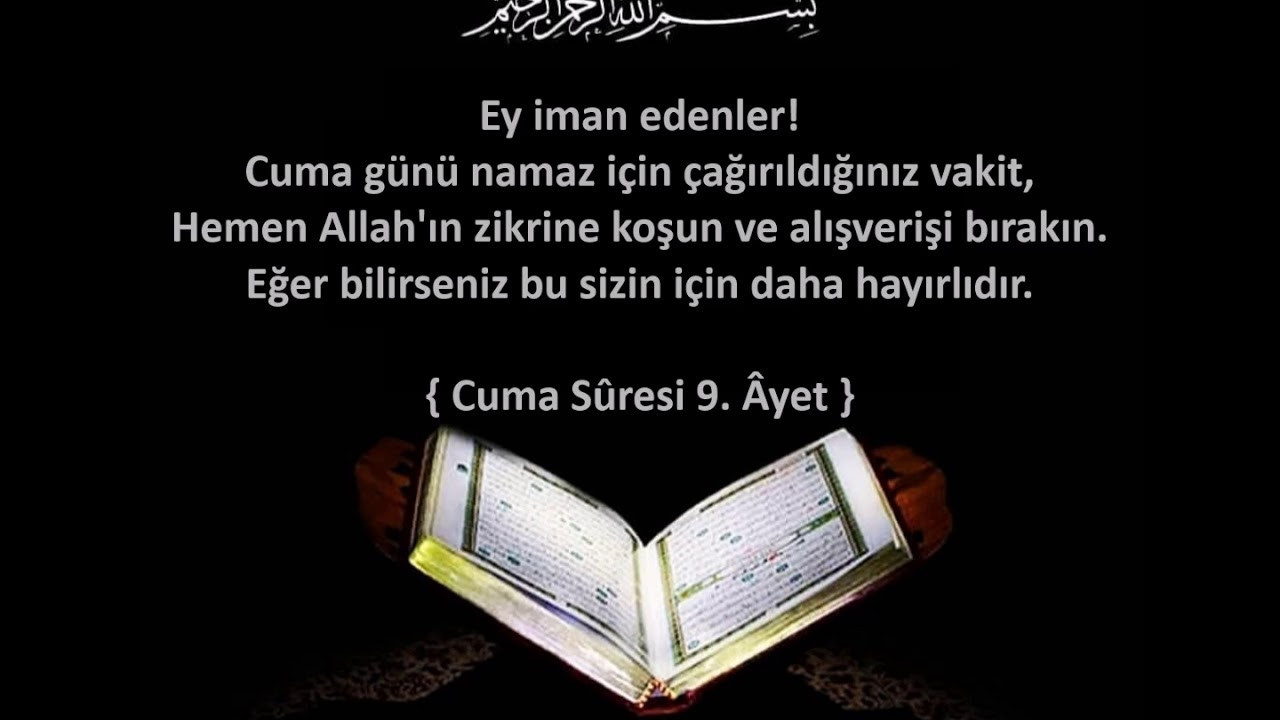 بسم الله الرحمن الرحيم
Ey iman edenler!
Cuma günü namaz için çağırıldığınız vakit,
Hemen Allah'ın zikrine koşun ve alışverişi bırakın.
Eğer bilirseniz bu sizin için daha hayırlıdır.
{ Cuma Sûresi 9. Âyet }